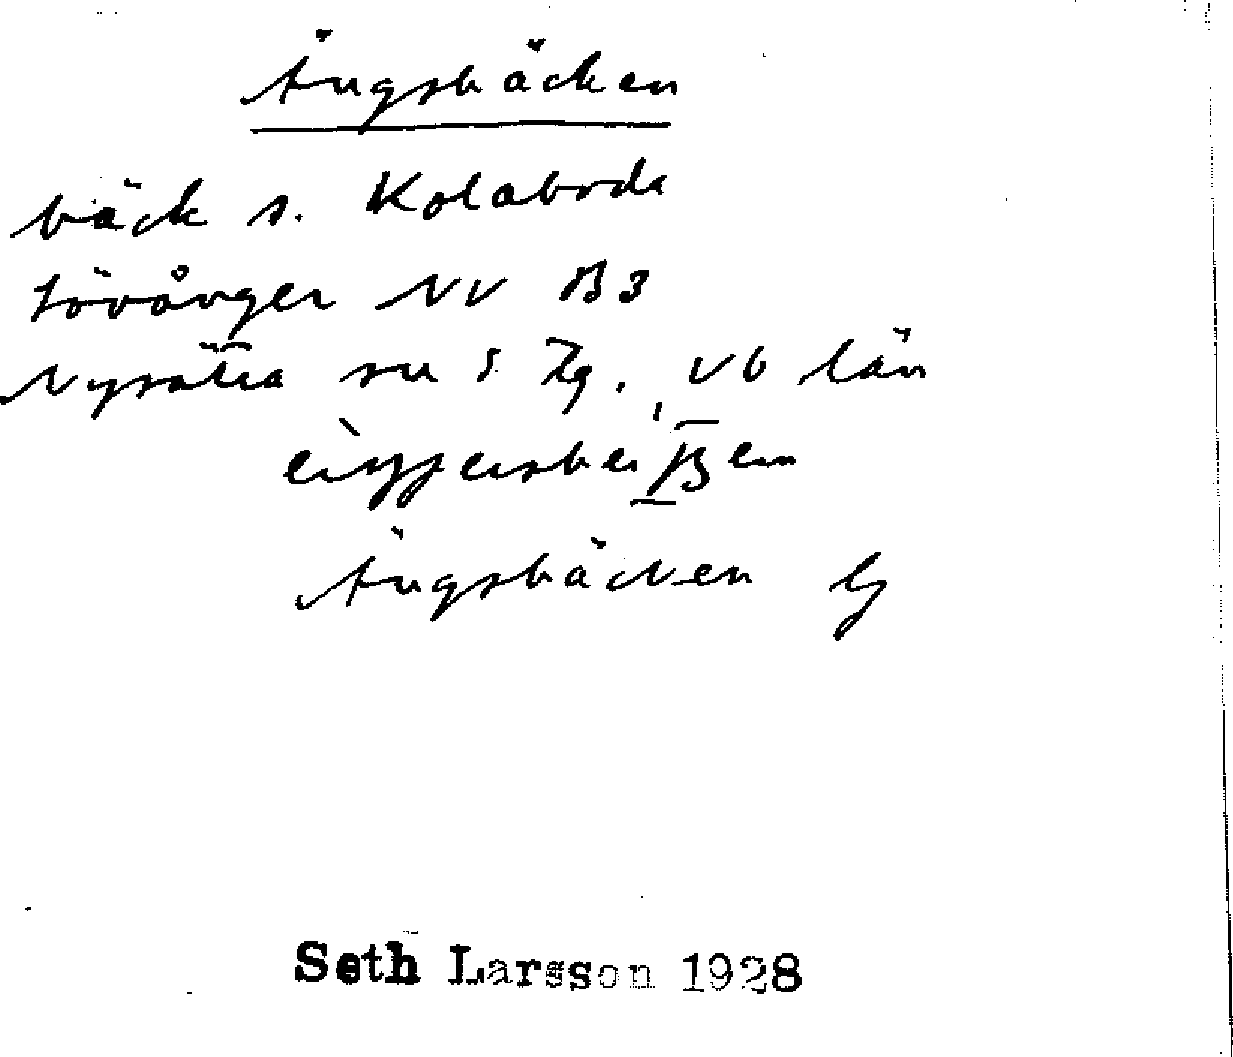 Ängsbäcken
bäck s. Kolaboda
Lövånger NV B3
Nysätra sn s Tg. Vb län
Ängsbäcken
Seth Larsson 1928